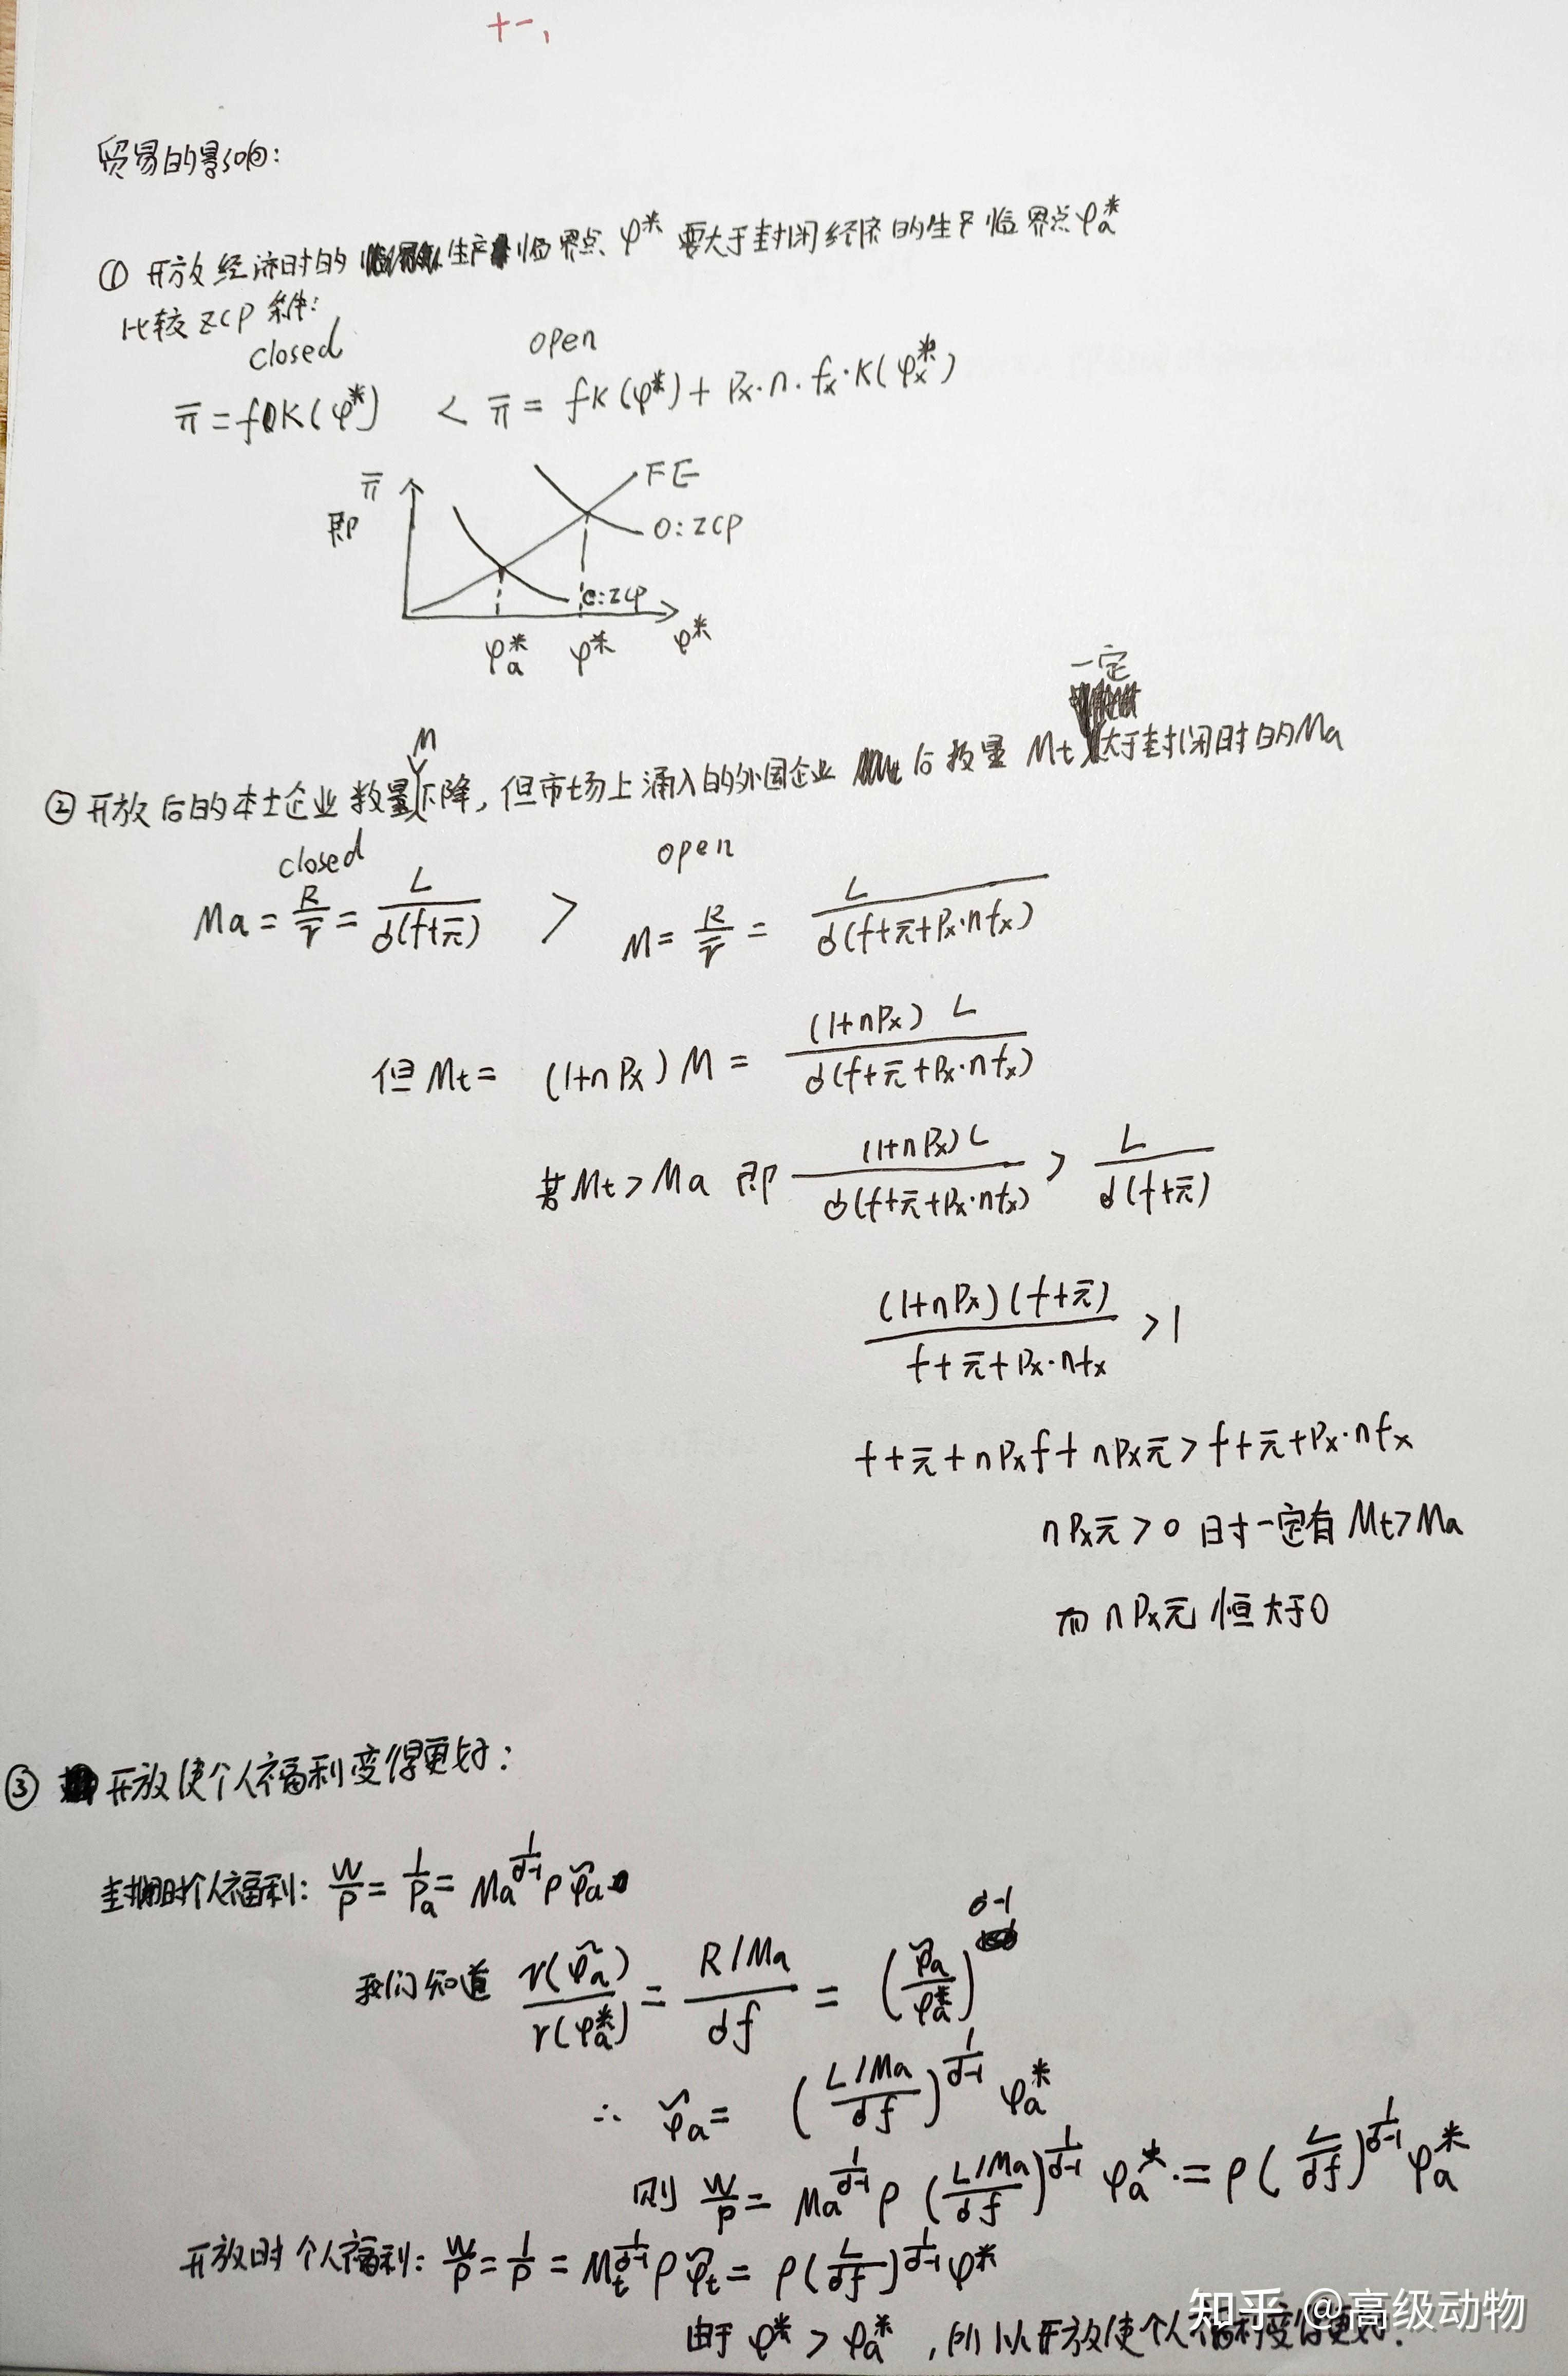 十一、
贸易的影响:
① 开放经济时的生产临界点 φ* 要大于封闭经济的生产临界点 φa*
比较 ZCP 条件:
closed open
π̄ = fK(φ*) < π̄ = fK(φ*) + Px·n·fx·K(φx*)
π̄ FE
即 O:ZCP
C:ZCP
φa* φ* φ*
一定
M
② 开放后的本土企业数量下降, 但市场上涌入的外国企业后数量 Mt 大于封闭时的 Ma
closed open
Ma = R/r̄ = L/σ(f+π̄) > M = R/r̄ = L/σ(f+π̄+Px·nfx)
但 Mt = (1+nPx)M = (1+nPx)L/σ(f+π̄+Px·nfx)
若 Mt > Ma 即 (1+nPx)L/σ(f+π̄+Px·nfx) > L/σ(f+π̄)
(1+nPx)(f+π̄)/f+π̄+Px·nfx > 1
f+π̄+nPxf+nPxπ̄ > f+π̄+Px·nfx
nPxπ̄ > 0 时一定有 Mt > Ma
而 nPxπ̄ 恒大于0
③ 开放使个人福利变得更好:
封闭时个人福利: W/P = 1/Pa = Ma^(1/σ-1) ρ φ̃a
我们知道 r(φ̃a)/r(φa*) = R/Ma/σf = (φ̃a/φa*)^σ-1
∴ φ̃a = (L/Ma/σf)^(1/σ-1) φa*
则 W/P = Ma^(1/σ-1) ρ (L/Ma/σf)^(1/σ-1) φa* · = ρ(L/σf)^(1/σ-1) φa*
开放时个人福利: W/P = 1/P = Mt^(1/σ-1) ρ φ̃t = ρ(L/σf)^(1/σ-1) φ*
由于 φ* > φa* , 所以开放使个人福利变得更好.
知乎 @高级动物